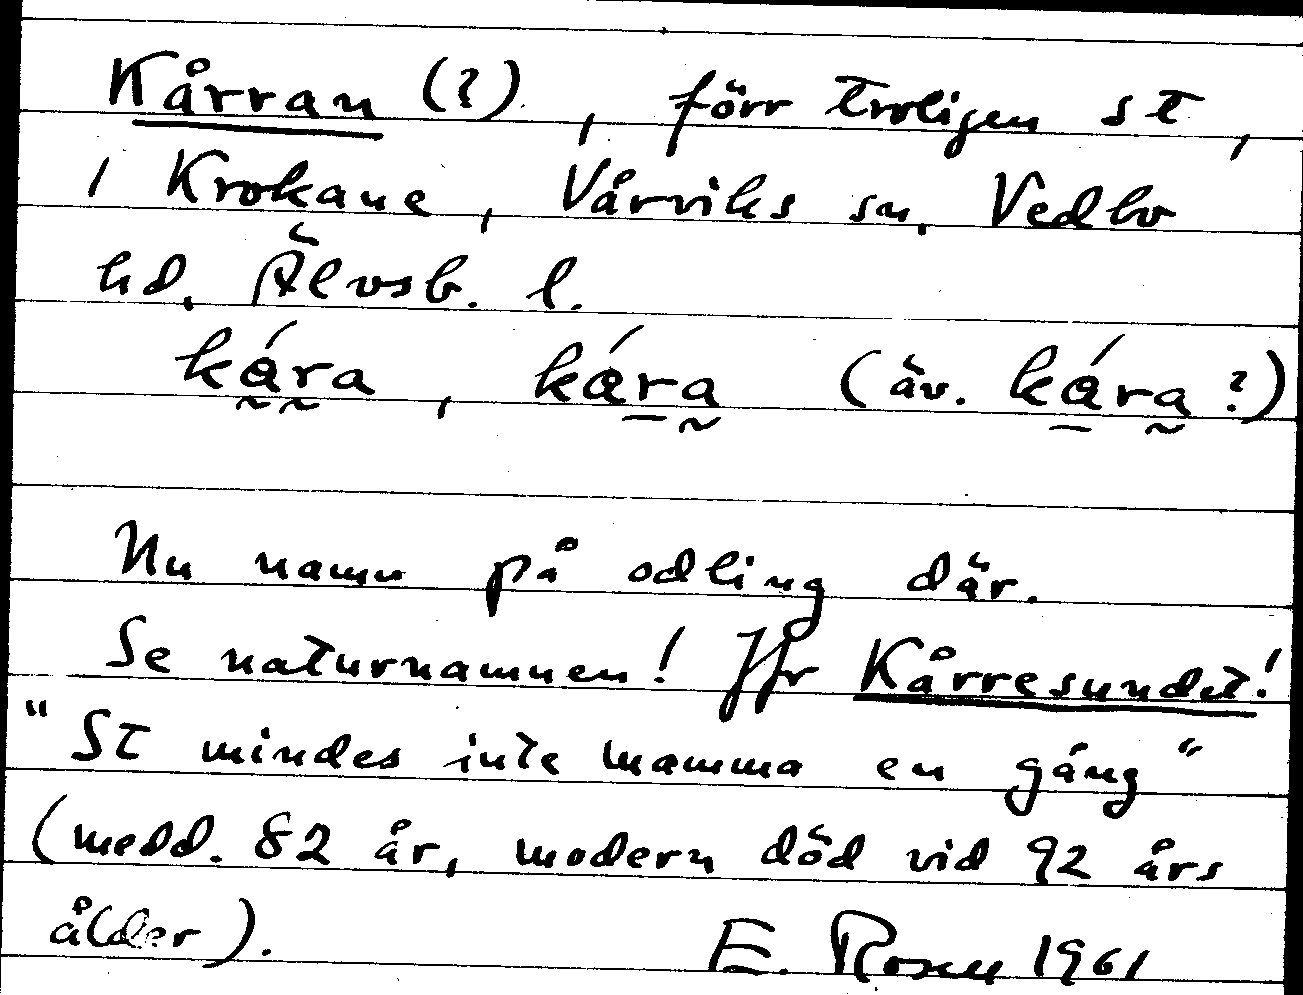 Kårran (?), förr troligen st,
i Krokane, Vårviks sn, Vedbo
hd, Älvsb. l.
kǻra, kǻra (äv. kǻra?)
Nu namn på odling där.
Se naturnamnen! Jfr Kårresundet!
"St mindes inte mamma en gång"
(medd. 82 år, modern död vid 92 års
ålder). E. Rosen 1961